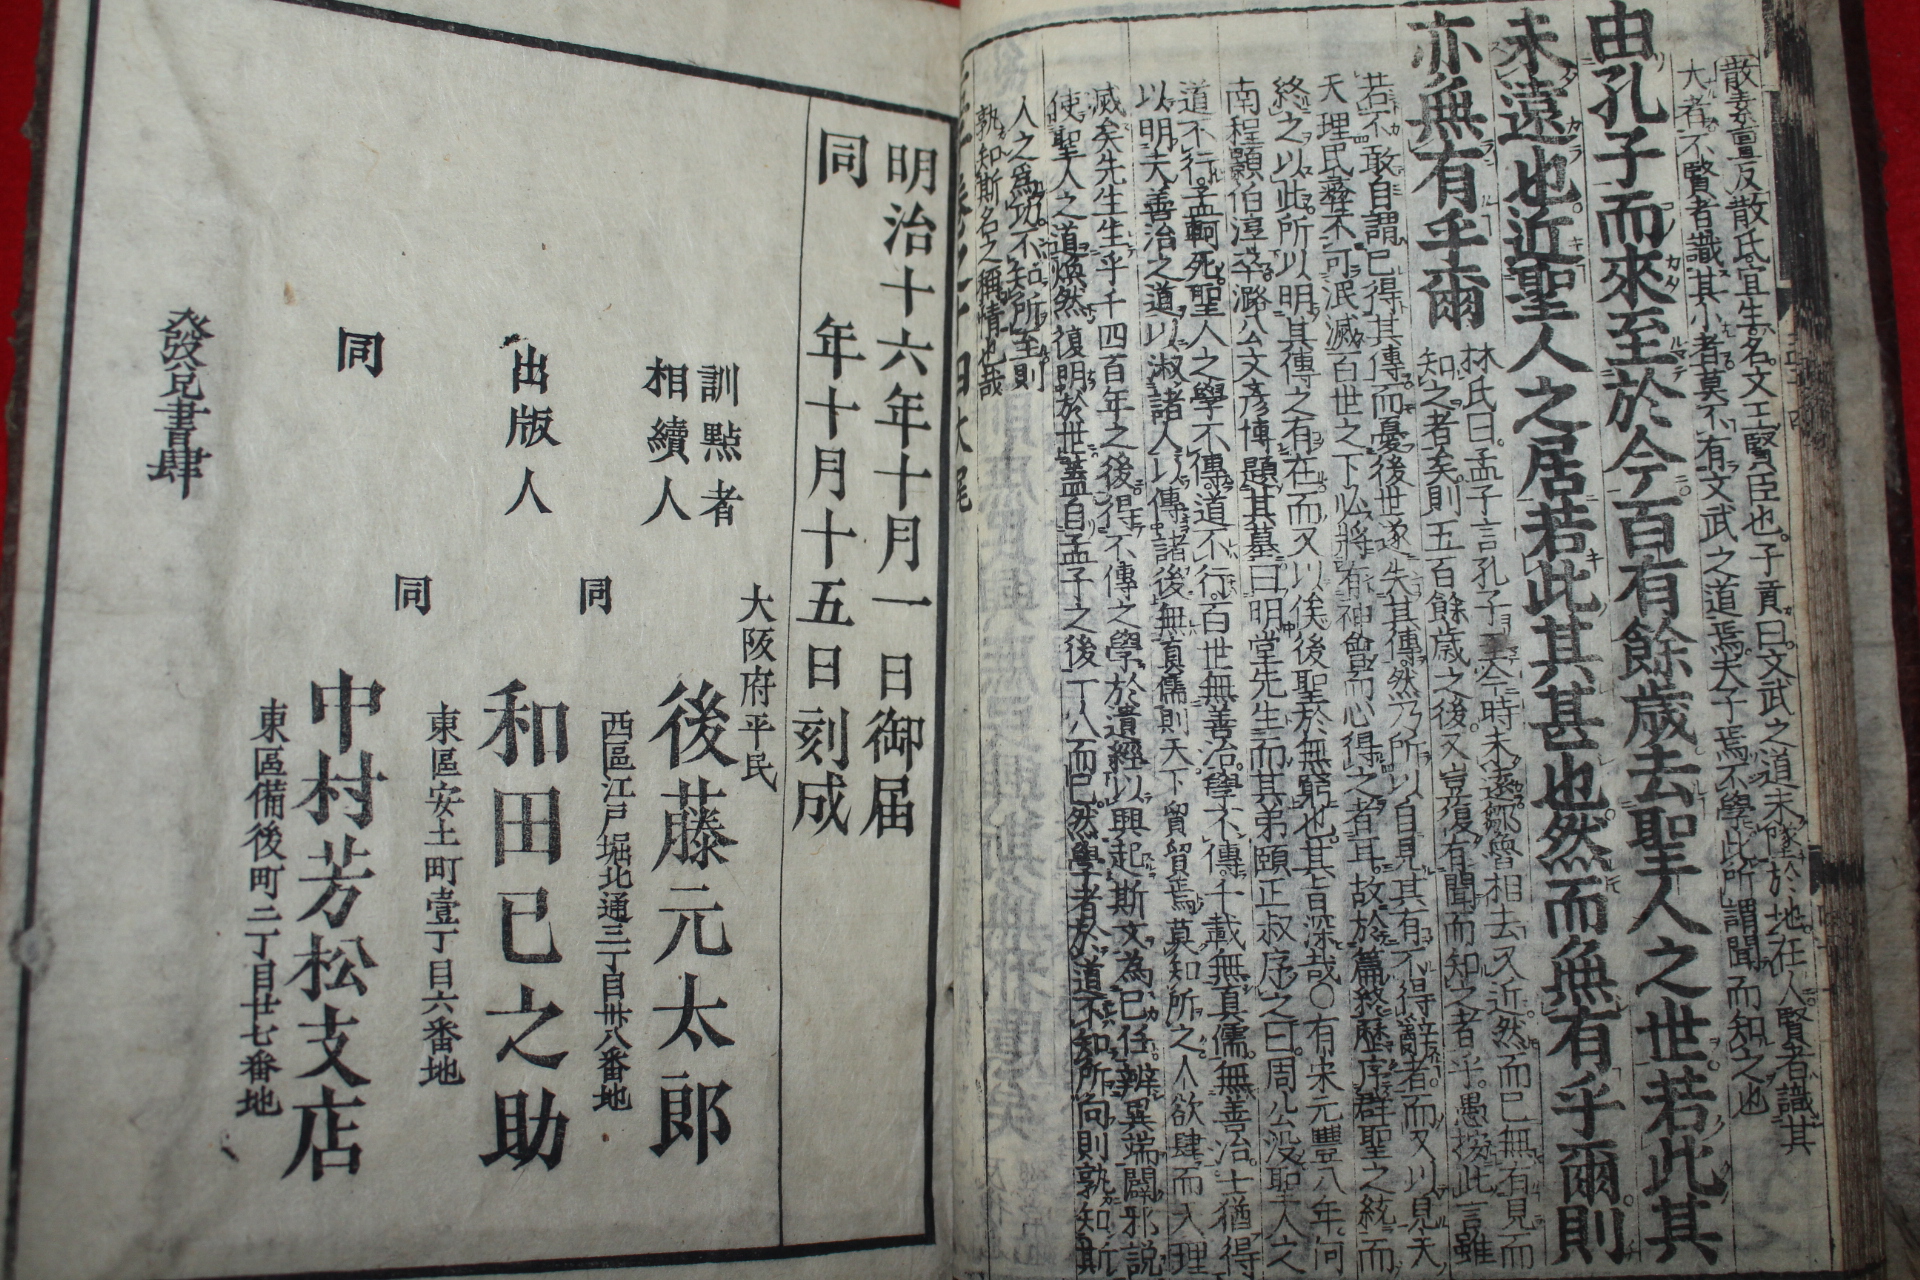 散素亶反散氏宜生名文王賢臣也子貢曰文武之道未墜於地在人賢者識其
大者不賢者識其小者莫不有文武之道焉夫子焉不學此所謂聞而知之也
由孔子而來至於今百有餘歲去聖人之世若此其
未遠也近聖人之居若此其甚也然而無有乎爾則
亦無有乎爾
林氏曰孟子言孔子至今時未遠鄒魯相去又近然而已無有見而
知之者矣則五百餘歲之後又豈復有聞而知之者乎愚按此言雖
若不敢自謂已得其傳而憂後世遂失其傳然乃所以自見其有不得辭者而又以見夫
天理民彝不可泯滅百世之下必將有神會而心得之者耳故於篇終歷序群聖之統而
終之以此所以明其傳之有在而又以俟後聖於無窮也其旨深哉○有宋元豐八年河
南程顥伯淳卒潞公文彥博題其墓曰明堂先生而其弟頤正叔序之曰周公沒聖人之
道不行孟軻死聖人之學不傳道不行百世無善治學不傳千載無真儒無善治士猶得
以明夫善治之道以淑諸人以傳諸後無真儒則天下貿貿焉莫知所之人欲肆而天理
滅矣先生生乎千四百年之後得不傳之學於遺經以興起斯文為已任辨異端闢邪說
使聖人之道煥然復明於世蓋自孟子之後一人而已然學者於道不知所向則孰知斯
人之為功不知所至則
孰知斯名之稱情也哉
明治十六年十月一日御届
同　年十月十五日刻成
訓點者　大阪府平民
相續人　後藤元太郎
同　西區江戸堀北通三丁目卅八番地
出版人　和田已之助
同　東區安土町壹丁目六番地
同　中村芳松支店
東區備後町二丁目廿七番地
發兌書肆